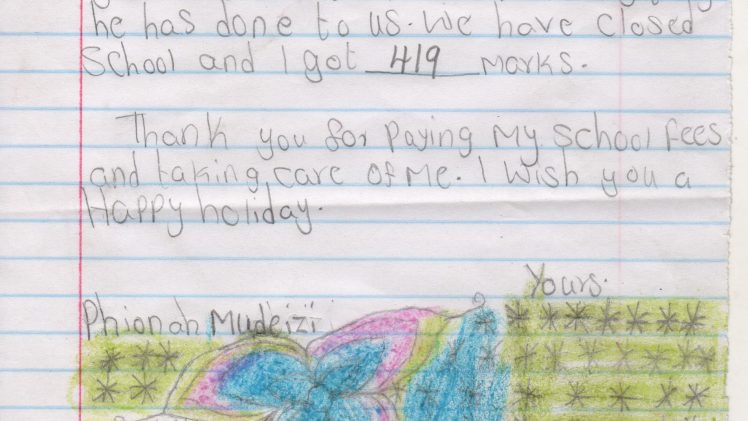 he has done to us. We have closed
School and I got 419 marks.
Thank you for paying My school fees
and taking care of Me. I Wish you a
Happy holiday.
Yours.
Phionah Mudeizi